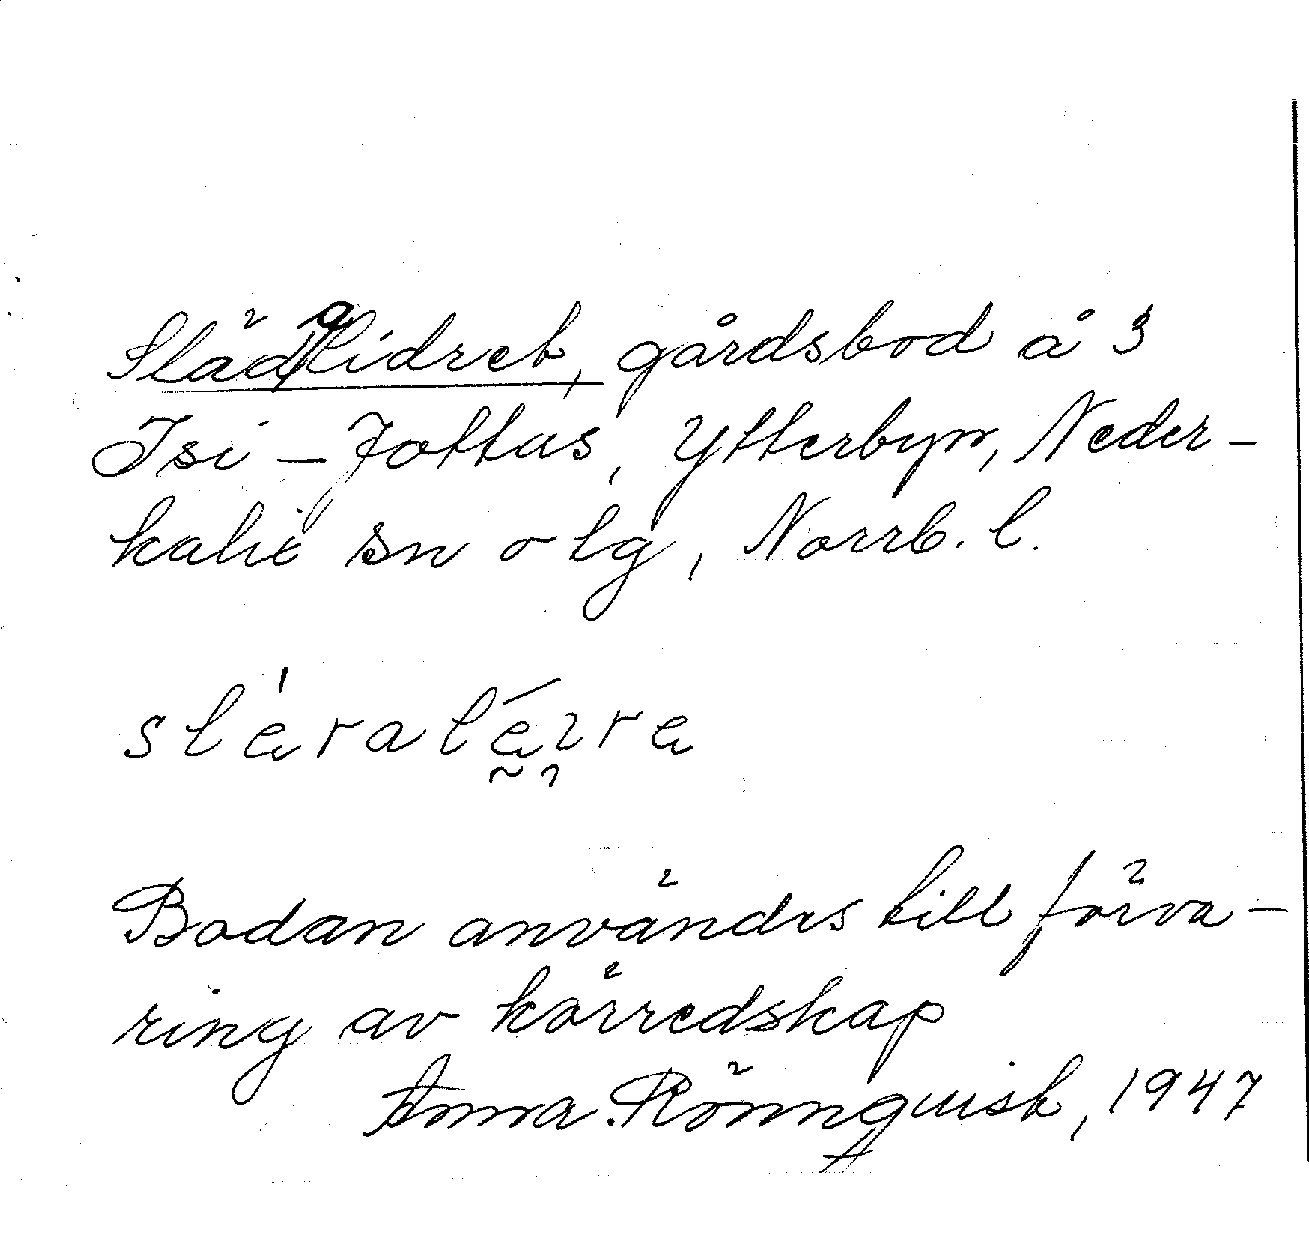 Slädalidret, gårdsbod å 3
Isi-Jottus, Ytterbyn, Neder-
kalix sn o tg, Norrb. l.
Bodan användes till förva-
ring av körredskap
Anna Rönnquist, 1947